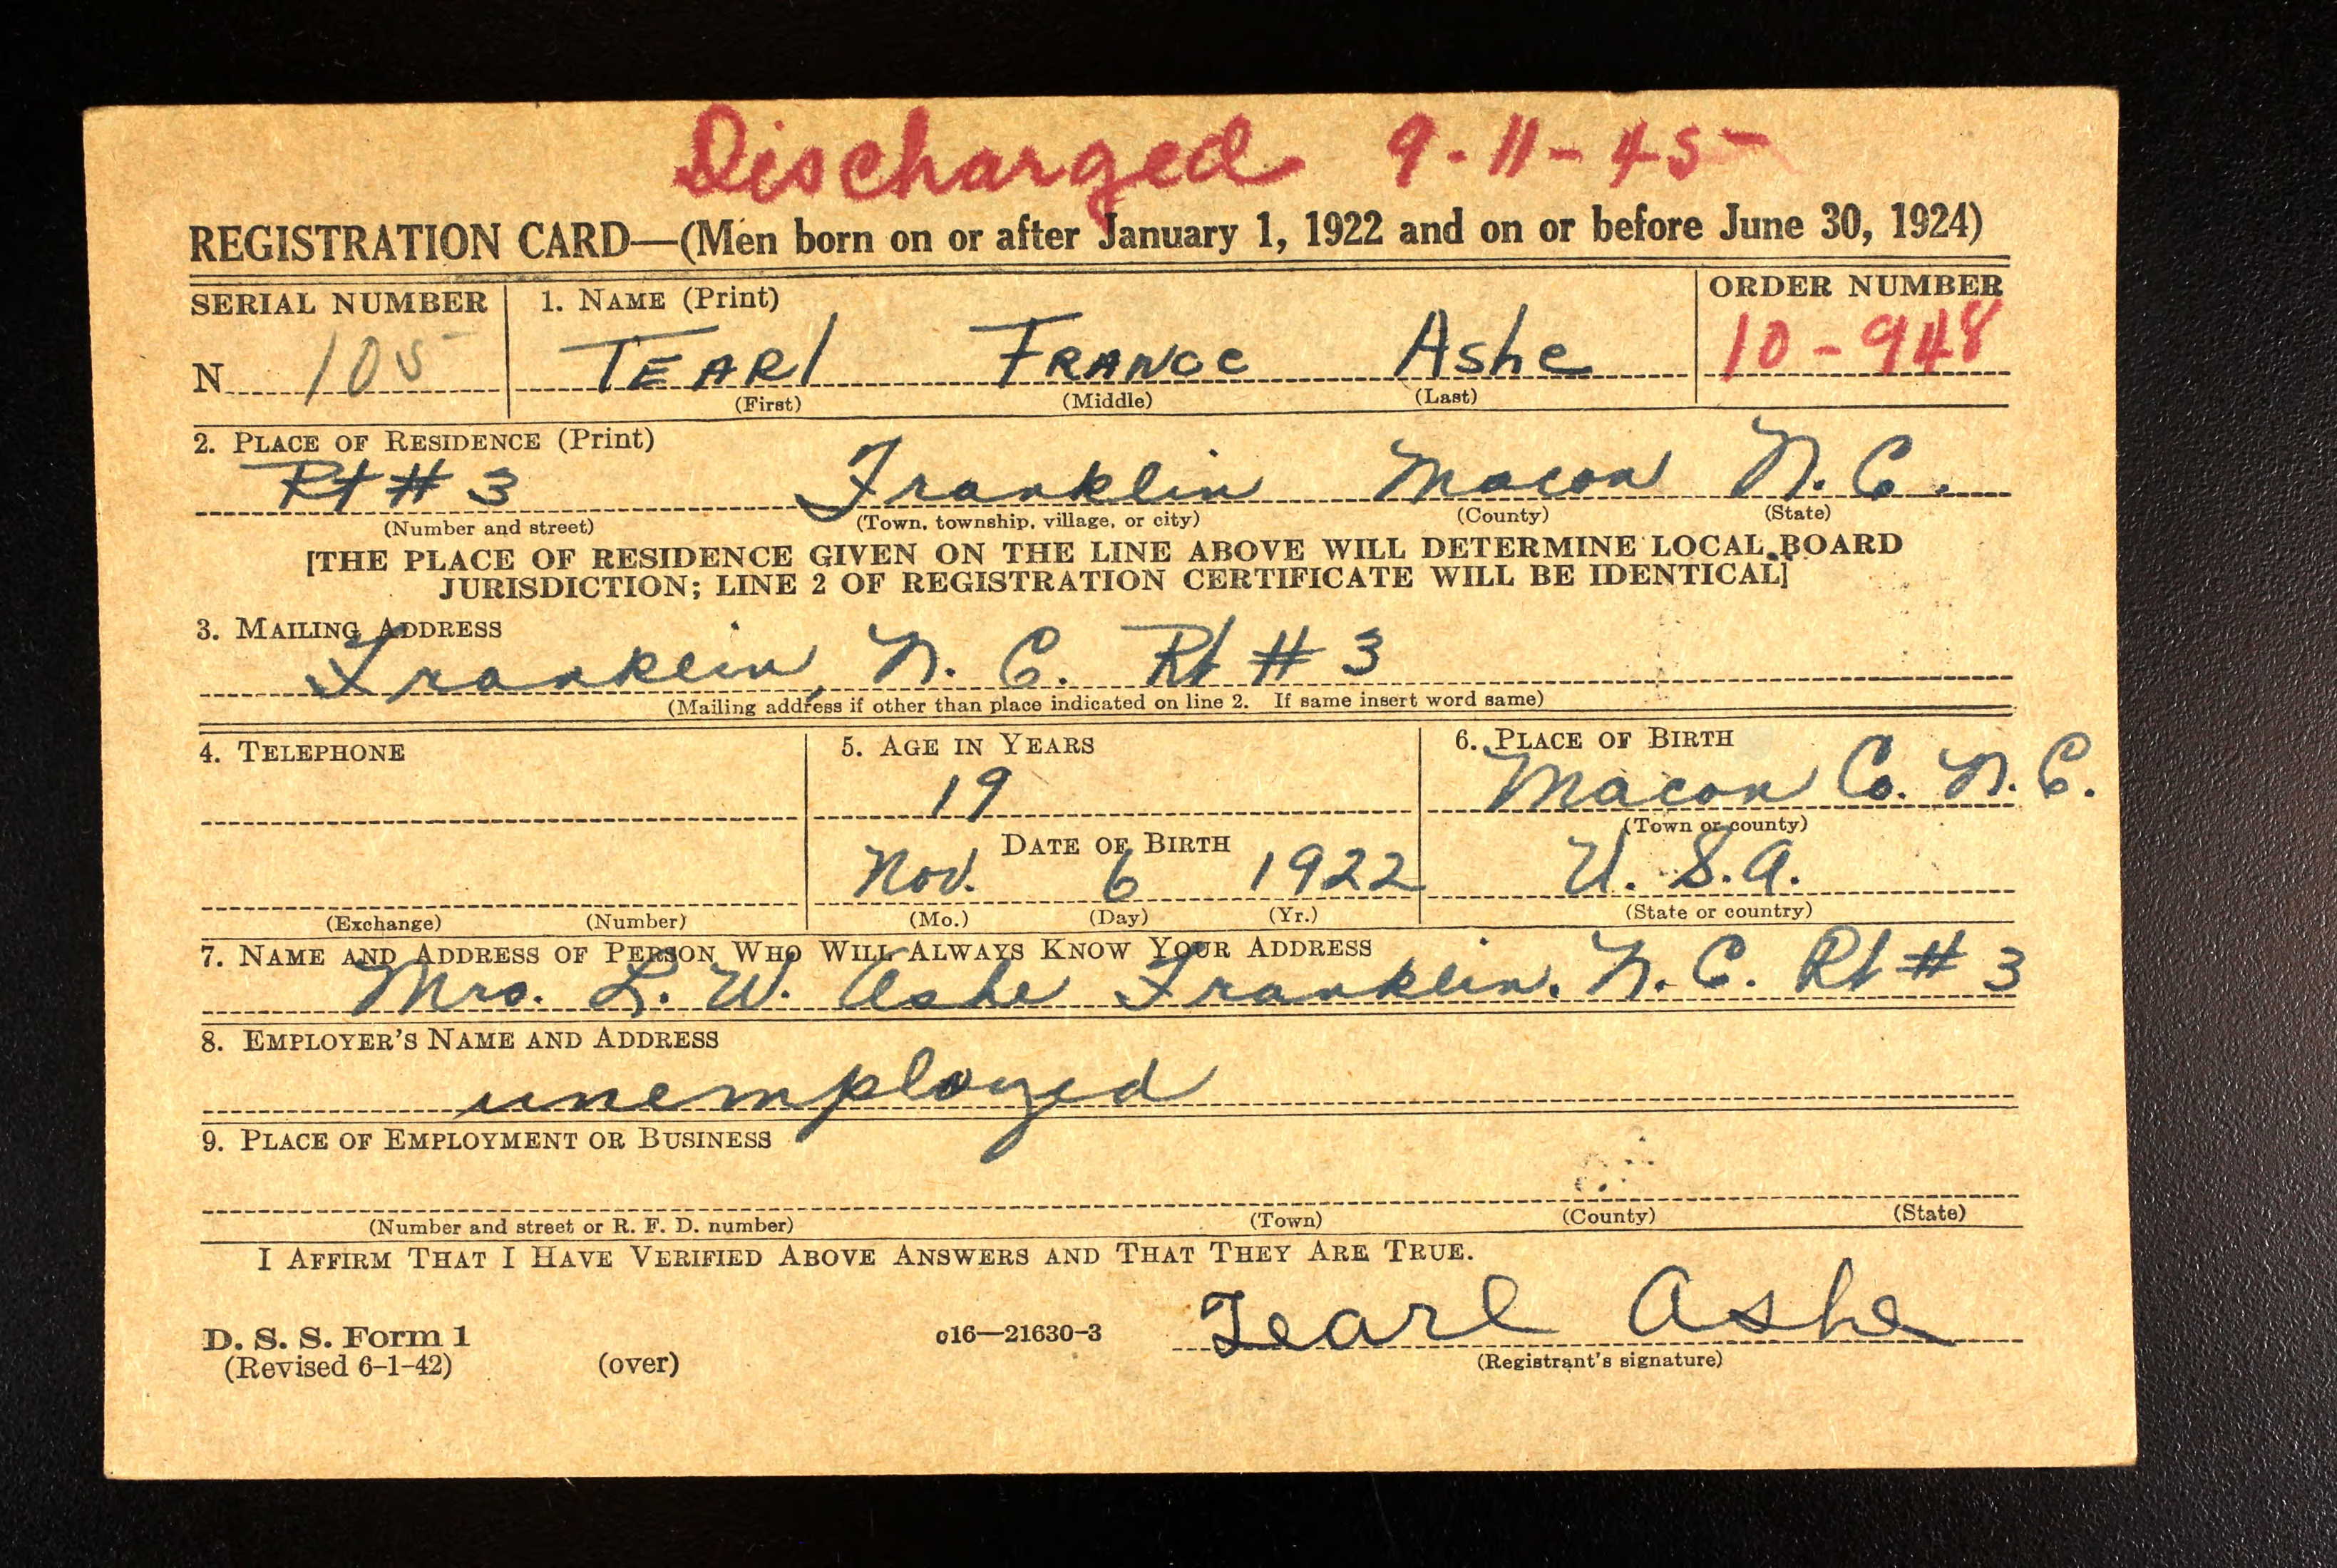 Discharged 9-11-45
REGISTRATION CARD—(Men born on or after January 1, 1922 and on or before June 30, 1924)
SERIAL NUMBER 1. NAME (Print) ORDER NUMBER
N 105 TEARl FRANCE Ashe 10-948
(First) (Middle) (Last)
2. PLACE OF RESIDENCE (Print)
Rt # 3 Franklin Macon N. C.
(Number and street) (Town, township, village, or city) (County) (State)
[THE PLACE OF RESIDENCE GIVEN ON THE LINE ABOVE WILL DETERMINE LOCAL BOARD
JURISDICTION; LINE 2 OF REGISTRATION CERTIFICATE WILL BE IDENTICAL]
3. MAILING ADDRESS
Franklin, N. C. Rt # 3
(Mailing address if other than place indicated on line 2. If same insert word same)
4. TELEPHONE 5. AGE IN YEARS 6. PLACE OF BIRTH
19 Macon Co. N. C.
DATE OF BIRTH (Town or county)
Nov. 6 1922 U. S. A.
(Exchange) (Number) (Mo.) (Day) (Yr.) (State or country)
7. NAME AND ADDRESS OF PERSON WHO WILL ALWAYS KNOW YOUR ADDRESS
Mrs. L. W. Ashe Franklin. N. C. Rt # 3
8. EMPLOYER'S NAME AND ADDRESS
unemployed
9. PLACE OF EMPLOYMENT OR BUSINESS
(Number and street or R. F. D. number) (Town) (County) (State)
I AFFIRM THAT I HAVE VERIFIED ABOVE ANSWERS AND THAT THEY ARE TRUE.
Tearl Ashe
D. S. S. Form 1 c16—21630-3
(Revised 6-1-42) (over) (Registrant's signature)